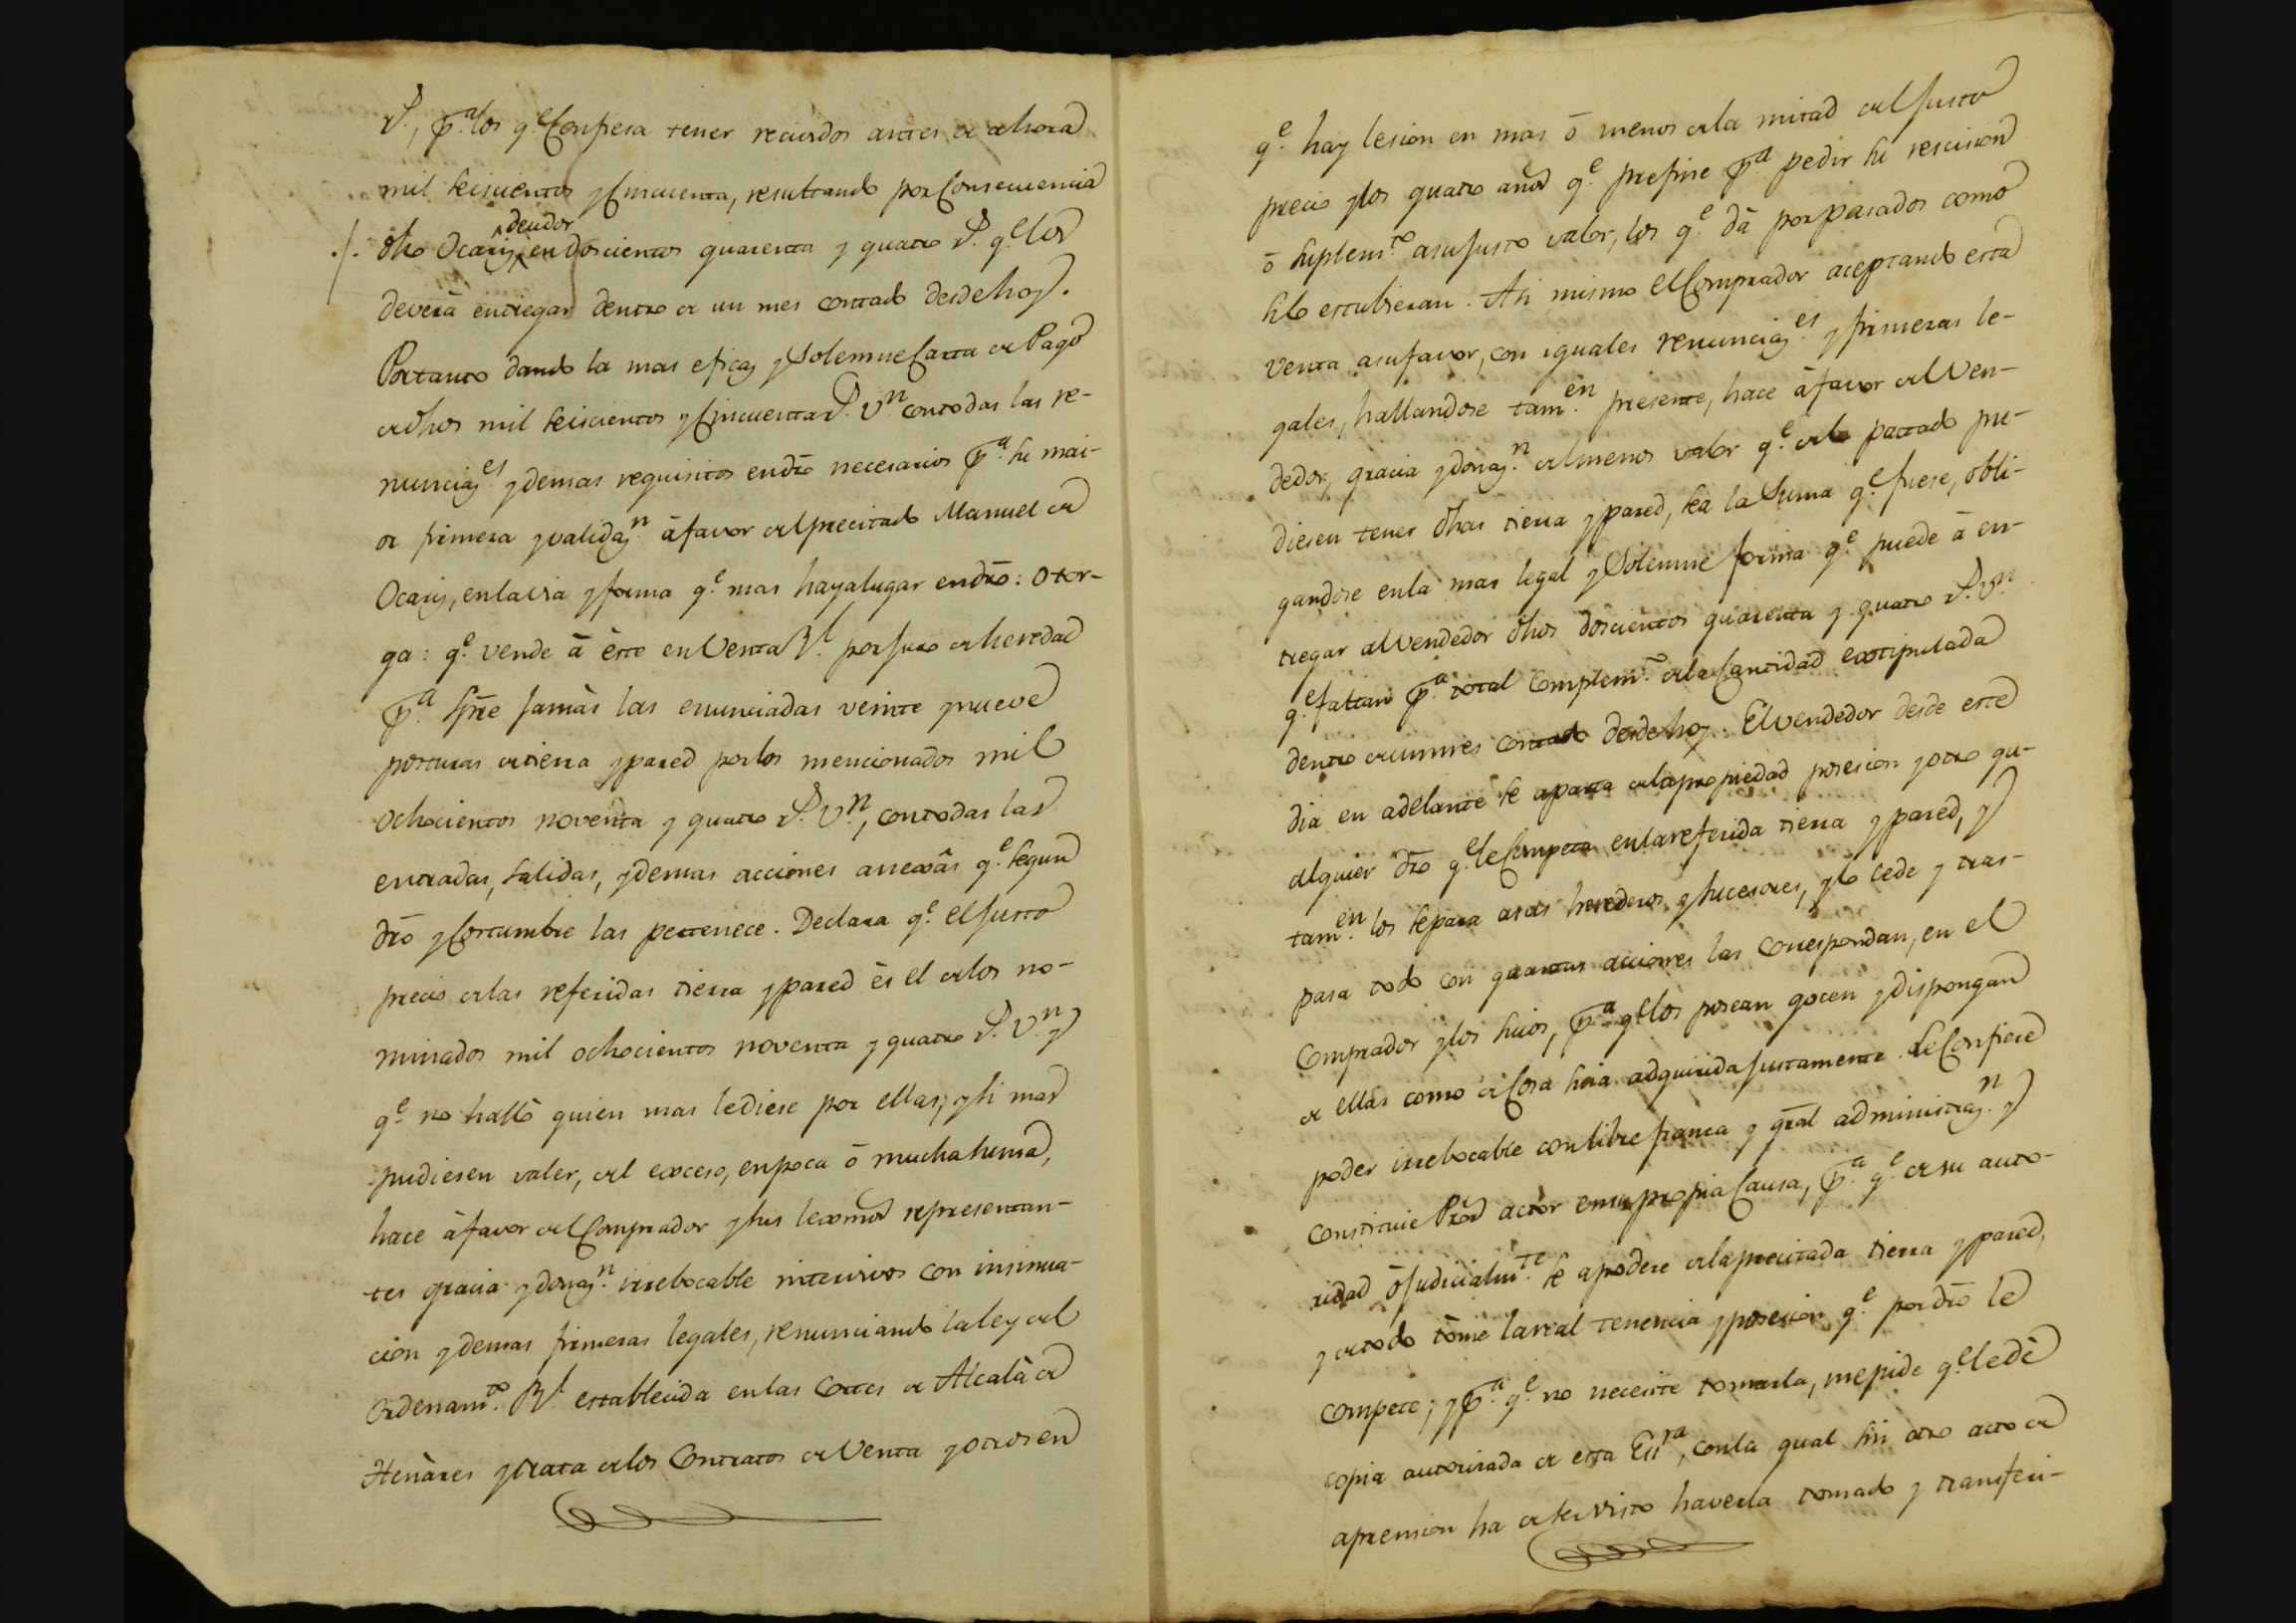 r.ˢ, p.ª los q.ᵉ Confiesa tener recividos antes de ahora
mil seiscientos y Cincuenta, resultando por Consecuencia
./. dho Ocariz, ^deudor en doscientos quarenta y quatro r.ˢ q.ᵉ los
deverà entregar dentro de un mes contado desde hoy.
Portanto dando la mas eficaz y Solemne Carta de Pago
de dhos mil seiscientos y Cincuenta r.ˢ v.ⁿ con todas las re-
nunciaz.ᵉˢ y demas requisitos en dro necesarios p.ª su mai-
or firmeza y validaz.ⁿ à favor del precitado Manuel de
Ocariz, en la via y forma q.ᵉ mas haya lugar en dro: Otor-
ga: q.ᵉ vende à èste en Venta R.ˡ por juro de heredad
p.ª spre jamàs las enunciadas veinte y nueve
posturas de tierra y pared por los mencionados mil
ochocientos noventa y quatro r.ˢ v.ⁿ, con todas las
entradas, salidas, y demas acciones anexâs q.ᵉ segun
dro y Costumbre las pertenece. Declara q.ᵉ el justo
precio de las referidas tierra y pared ès el de los no-
minados mil ochocientos noventa y quatro r.ˢ v.ⁿ y
q.ᵉ no hallò quien mas le diese por ellas; y si mas
pudiesen valer, del exceso, en poca ò mucha suma,
hace à favor del Comprador y sus lexmos representan-
tes gracia y donaz.ⁿ irrebocable intervivos con insinua-
cion y demas firmezas legales, renunciando la ley del
Ordenam.ᵗᵒ R.ˡ establecida en las Cortes de Alcalà de
Henàres y trata de los Contratos de Venta y otros en
q.ᵉ hay lesion en mas ò menos de la mitad del justo
precio y los quatro años q.ᵉ prefine p.ª pedir su rescision
ò suplem.ᵗᵒ a su justo valor, los q.ᵉ dà por pasados como
si lo estubieran. Asi mismo el Comprador aceptando esta
Venta a su favor, con iguales renunciaz.ᵉˢ y firmezas le-
gales, hallandose tam.ᵉⁿ presente, hace à favor del Ven-
dedor, gracia y donaz.ⁿ del menos valor q.ᵉ de lo pactado pu-
diesen tener dhas tierra y pared, sea la Suma q.ᵉ fuese, obli-
gandose en la mas legal y Solemne forma q.ᵉ puede à en-
tregar al Vendedor dhos doscientos quarenta y quatro r.ˢ v.ⁿ
q.ᵉ faltan p.ª total Complem.ᵗᵒ de la Cantidad extipulada
dentro de un mes contado desde hoy. El vendedor desde este
dia en adelante se aparta de la propiedad posesion y otro qu-
alquier dro q.ᵉ le Competa en la referida tierra y pared, y
tam.ᵉⁿ los separa a sus herederos y sucesores, y lo cede y tras-
pasa todo con quantas acciones las Correspondan, en el
Comprador y los suios, p.ª q.ᵉ los posean gocen y dispongan
de ellas como de Cosa suia adquirida justamente. Le Confiere
poder irrebocable con libre franca y gral administraz.ⁿ y
Constituie Pror actòr en su propia Causa, p.ª q.ᵉ de su auto-
ridad ò judicialm.ᵗᵉ se apodere de la precitada tierra y pared,
y de todo tòme la real tenencia y posesion q.ᵉ por dro le
compete; y p.ª q.ᵉ no necesite tomarla, me pide q.ᵉ le dè
copia autorizada de esta Esr.ª, con la qual sin otro acto de
aprension ha de ser visto haverla tomado y transferi-